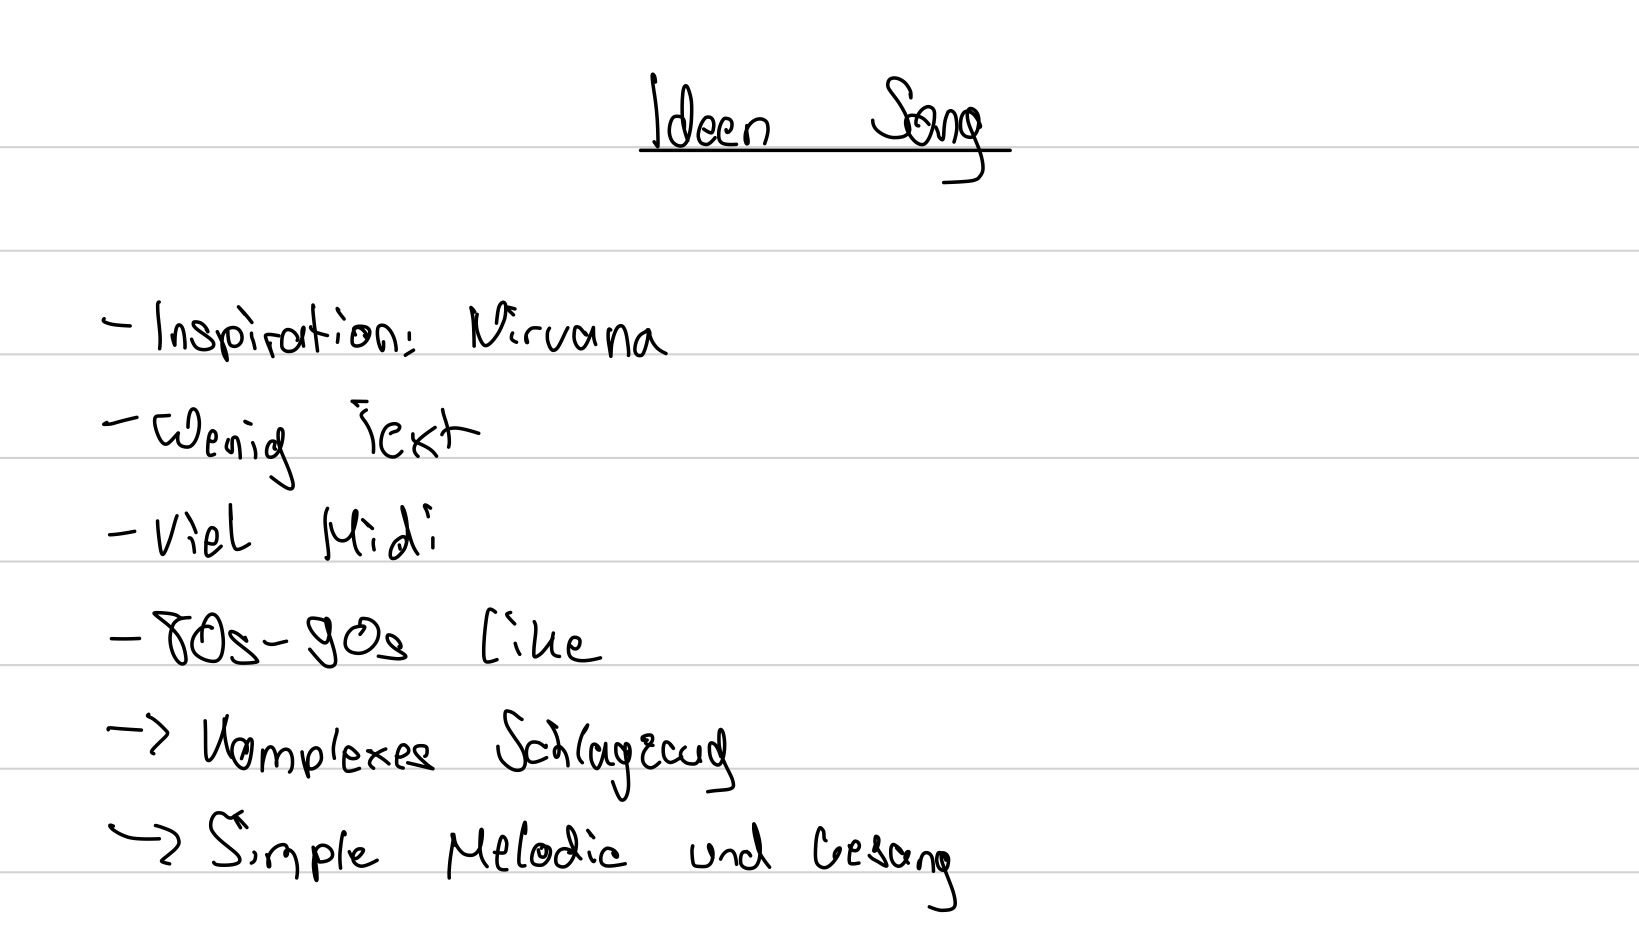 Ideen Song
- Inspiration: Nirvana
- Wenig Text
- Viel Midi
- 80s-90s like
-> Komplexes Schlagzeug
-> Simple Melodie und Gesang